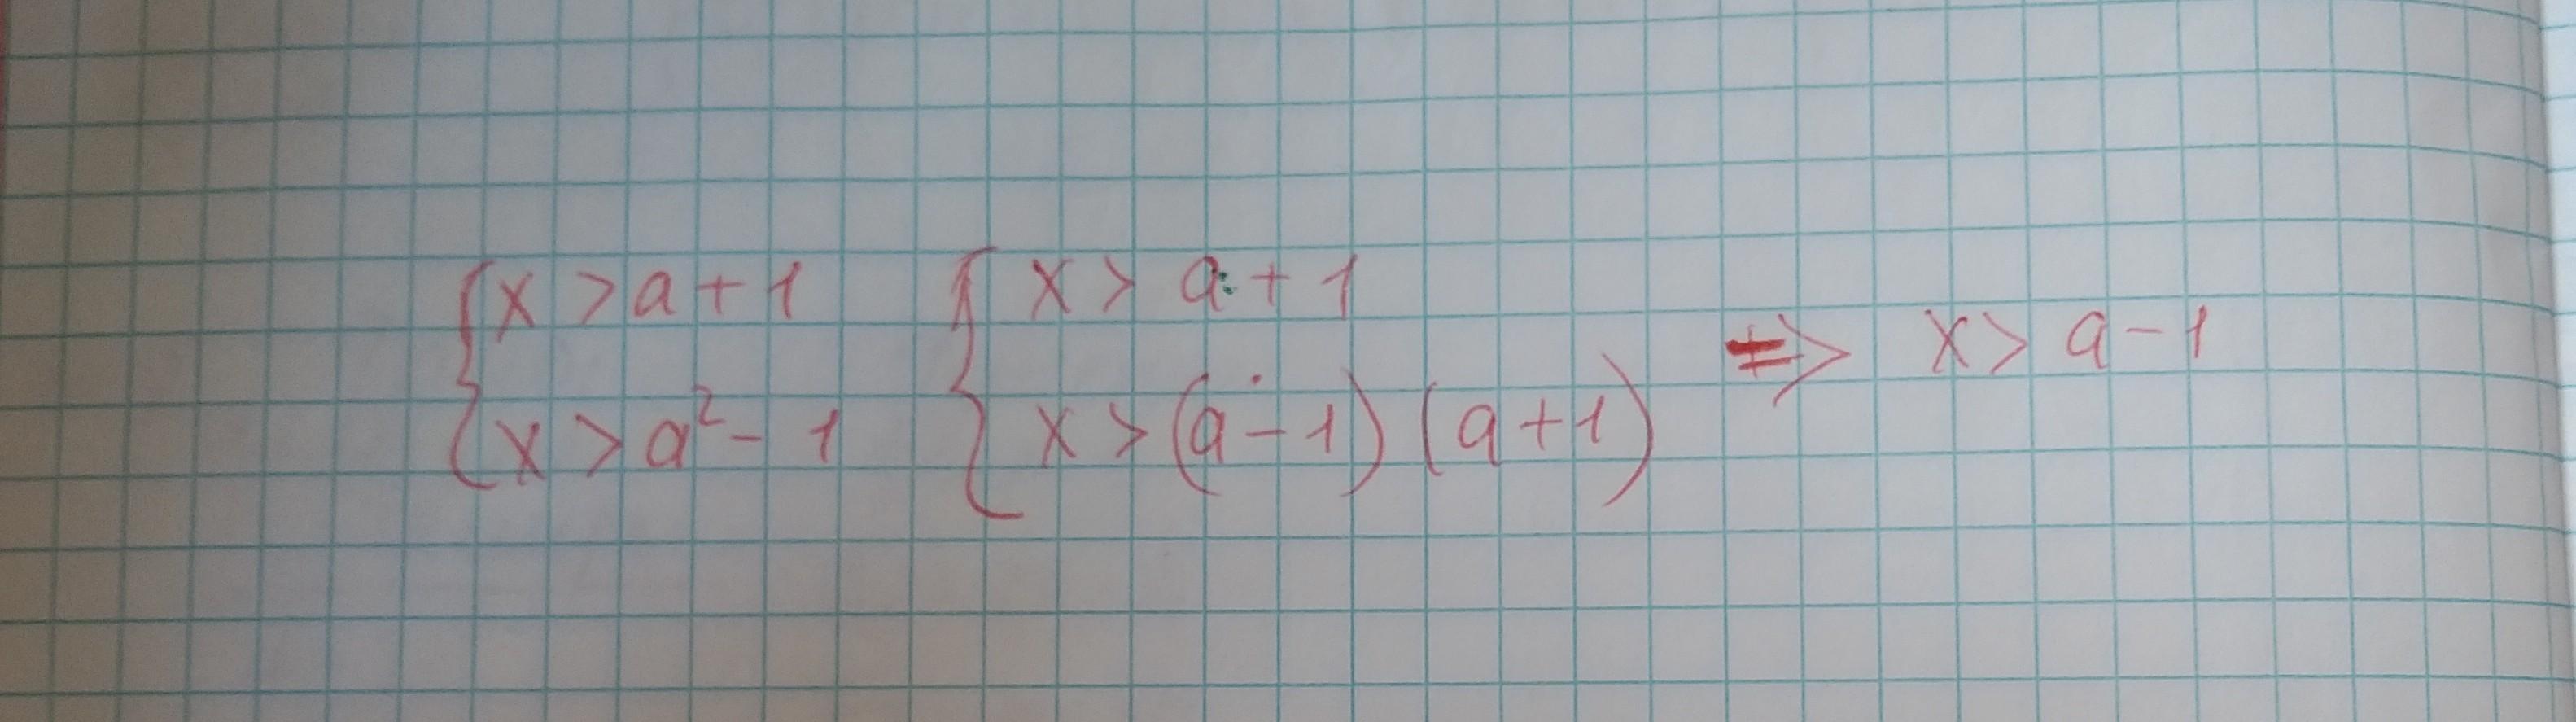 {x > a + 1 {x > a + 1
{x > a² - 1 {x > (a - 1) (a + 1) ⇒ x > a - 1